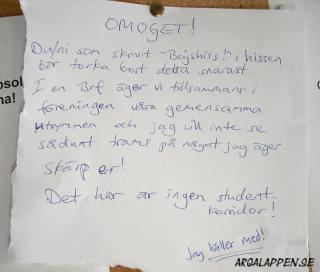 OMOGET!
Du/ni som skrivit "Bögshiss!" i hissen
bör torka bort detta snarast
I en Brf äger vi tillsammans i
föreningen våra gemensamma
utrymmen och jag vill inte se
sådant trams på något jag äger
Skärp er!
Det här är ingen student-
korridor!
Jag håller med!
ARGALAPPEN.SE